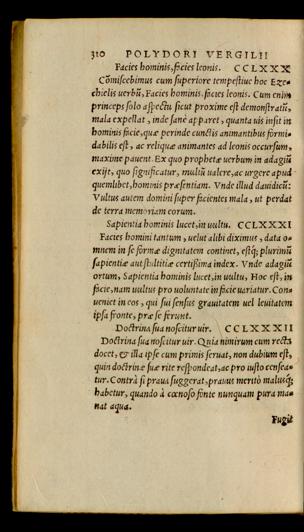 310 POLYDORI VERGILII
Facies hominis, facies leonis. CCLXXX
Cōmiscebimus cum superiore tempestiue hoc Eze-
chielis uerbū, Facies hominis, facies leonis. Cum enim
princeps solo aspectu sicut proxime est demonstratū,
mala expellat, inde sanè apparet, quanta uis insit in
hominis facie, quæ perinde cunctis animantibus formi-
dabilis est, ac reliquæ animantes ad leonis occursum,
maxime pauent. Ex quo prophetæ uerbum in adagiū
exijt, quo significatur, multū ualere, ac urgere apud
quemlibet, hominis præsentiam. Vnde illud dauidicū:
Vultus autem domini super facientes mala, ut perdat
de terra memoriam eorum.
Sapientia hominis lucet, in uultu. CCLXXXI
Facies homini tantum, uelut alibi diximus, data o-
mnem in se formæ dignitatem continet, estq; plurimū
sapientiæ aut stultitiæ certissima index. Vnde adagiū
ortum, Sapientia hominis lucet, in uultu. Hoc est, in
facie, nam uultus pro uoluntate in facie uariatur. Con-
ueniet in eos, qui sui sensus grauitatem uel leuitatem
ipsa fronte, præ se ferunt.
Doctrina sua noscitur uir. CCLXXXII
Doctrina sua noscitur uir. Quia nimirum cum recta
docet, & illa ipse cum primis seruat, non dubium est,
quin doctrinæ suæ rite respondeat, ac pro iusto censea-
tur. Contrà si praua suggerat, prauus meritò malusq;
habetur, quando à cœnoso fonte nunquam pura ma-
nat aqua.
Fugit